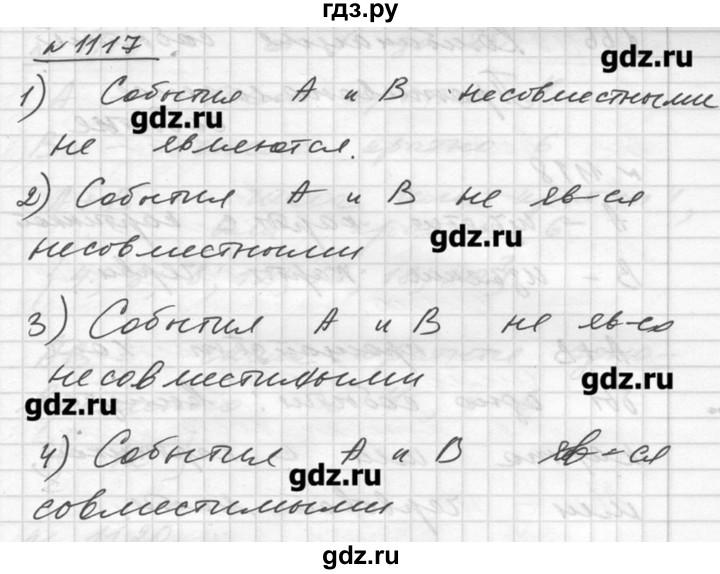 гдз.ру
№1117
gdz.ru
1) События А и В несовместными
gdz.ru
не являются.
2) События А и В не яв-ся
gdz.ru
несовместными
3) События А и В не яв-ся
несовместимыми
gdz.ru
gdz.ru
4) События А и В яв-ся
gdz.ru
совместимыми
gdz.ru